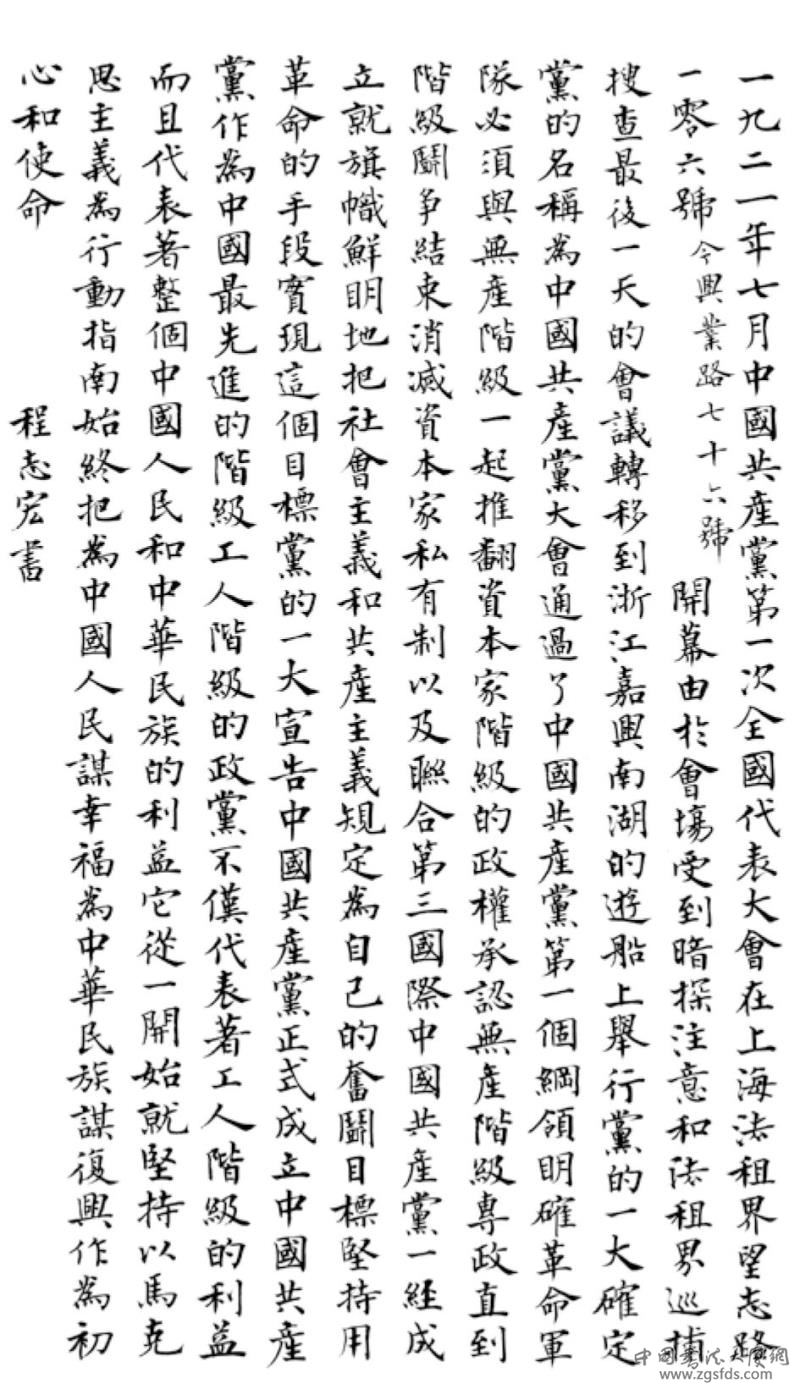 一九二一年七月中國共產黨第一次全國代表大會在上海法租界望志路
一零六號今興業路七十六號開幕由於會場受到暗探注意和法租界巡捕
搜查最後一天的會議轉移到浙江嘉興南湖的遊船上舉行黨的一大確定
黨的名稱為中國共產黨大會通過了中國共產黨第一個綱領明確革命軍
隊必須與無產階級一起推翻資本家階級的政權承認無產階級專政直到
階級鬭爭結束消滅資本家私有制以及聯合第三國際中國共產黨一經成
立就旗幟鮮明地把社會主義和共產主義規定為自己的奮鬭目標堅持用
革命的手段實現這個目標黨的一大宣告中國共產黨正式成立中國共產
黨作為中國最先進的階級工人階級的政黨不僅代表著工人階級的利益
而且代表著整個中國人民和中華民族的利益它從一開始就堅持以馬克
思主義為行動指南始終把為中國人民謀幸福為中華民族謀復興作為初
心和使命
程志宏書
中国书法大厦網
www.zgsfds.com